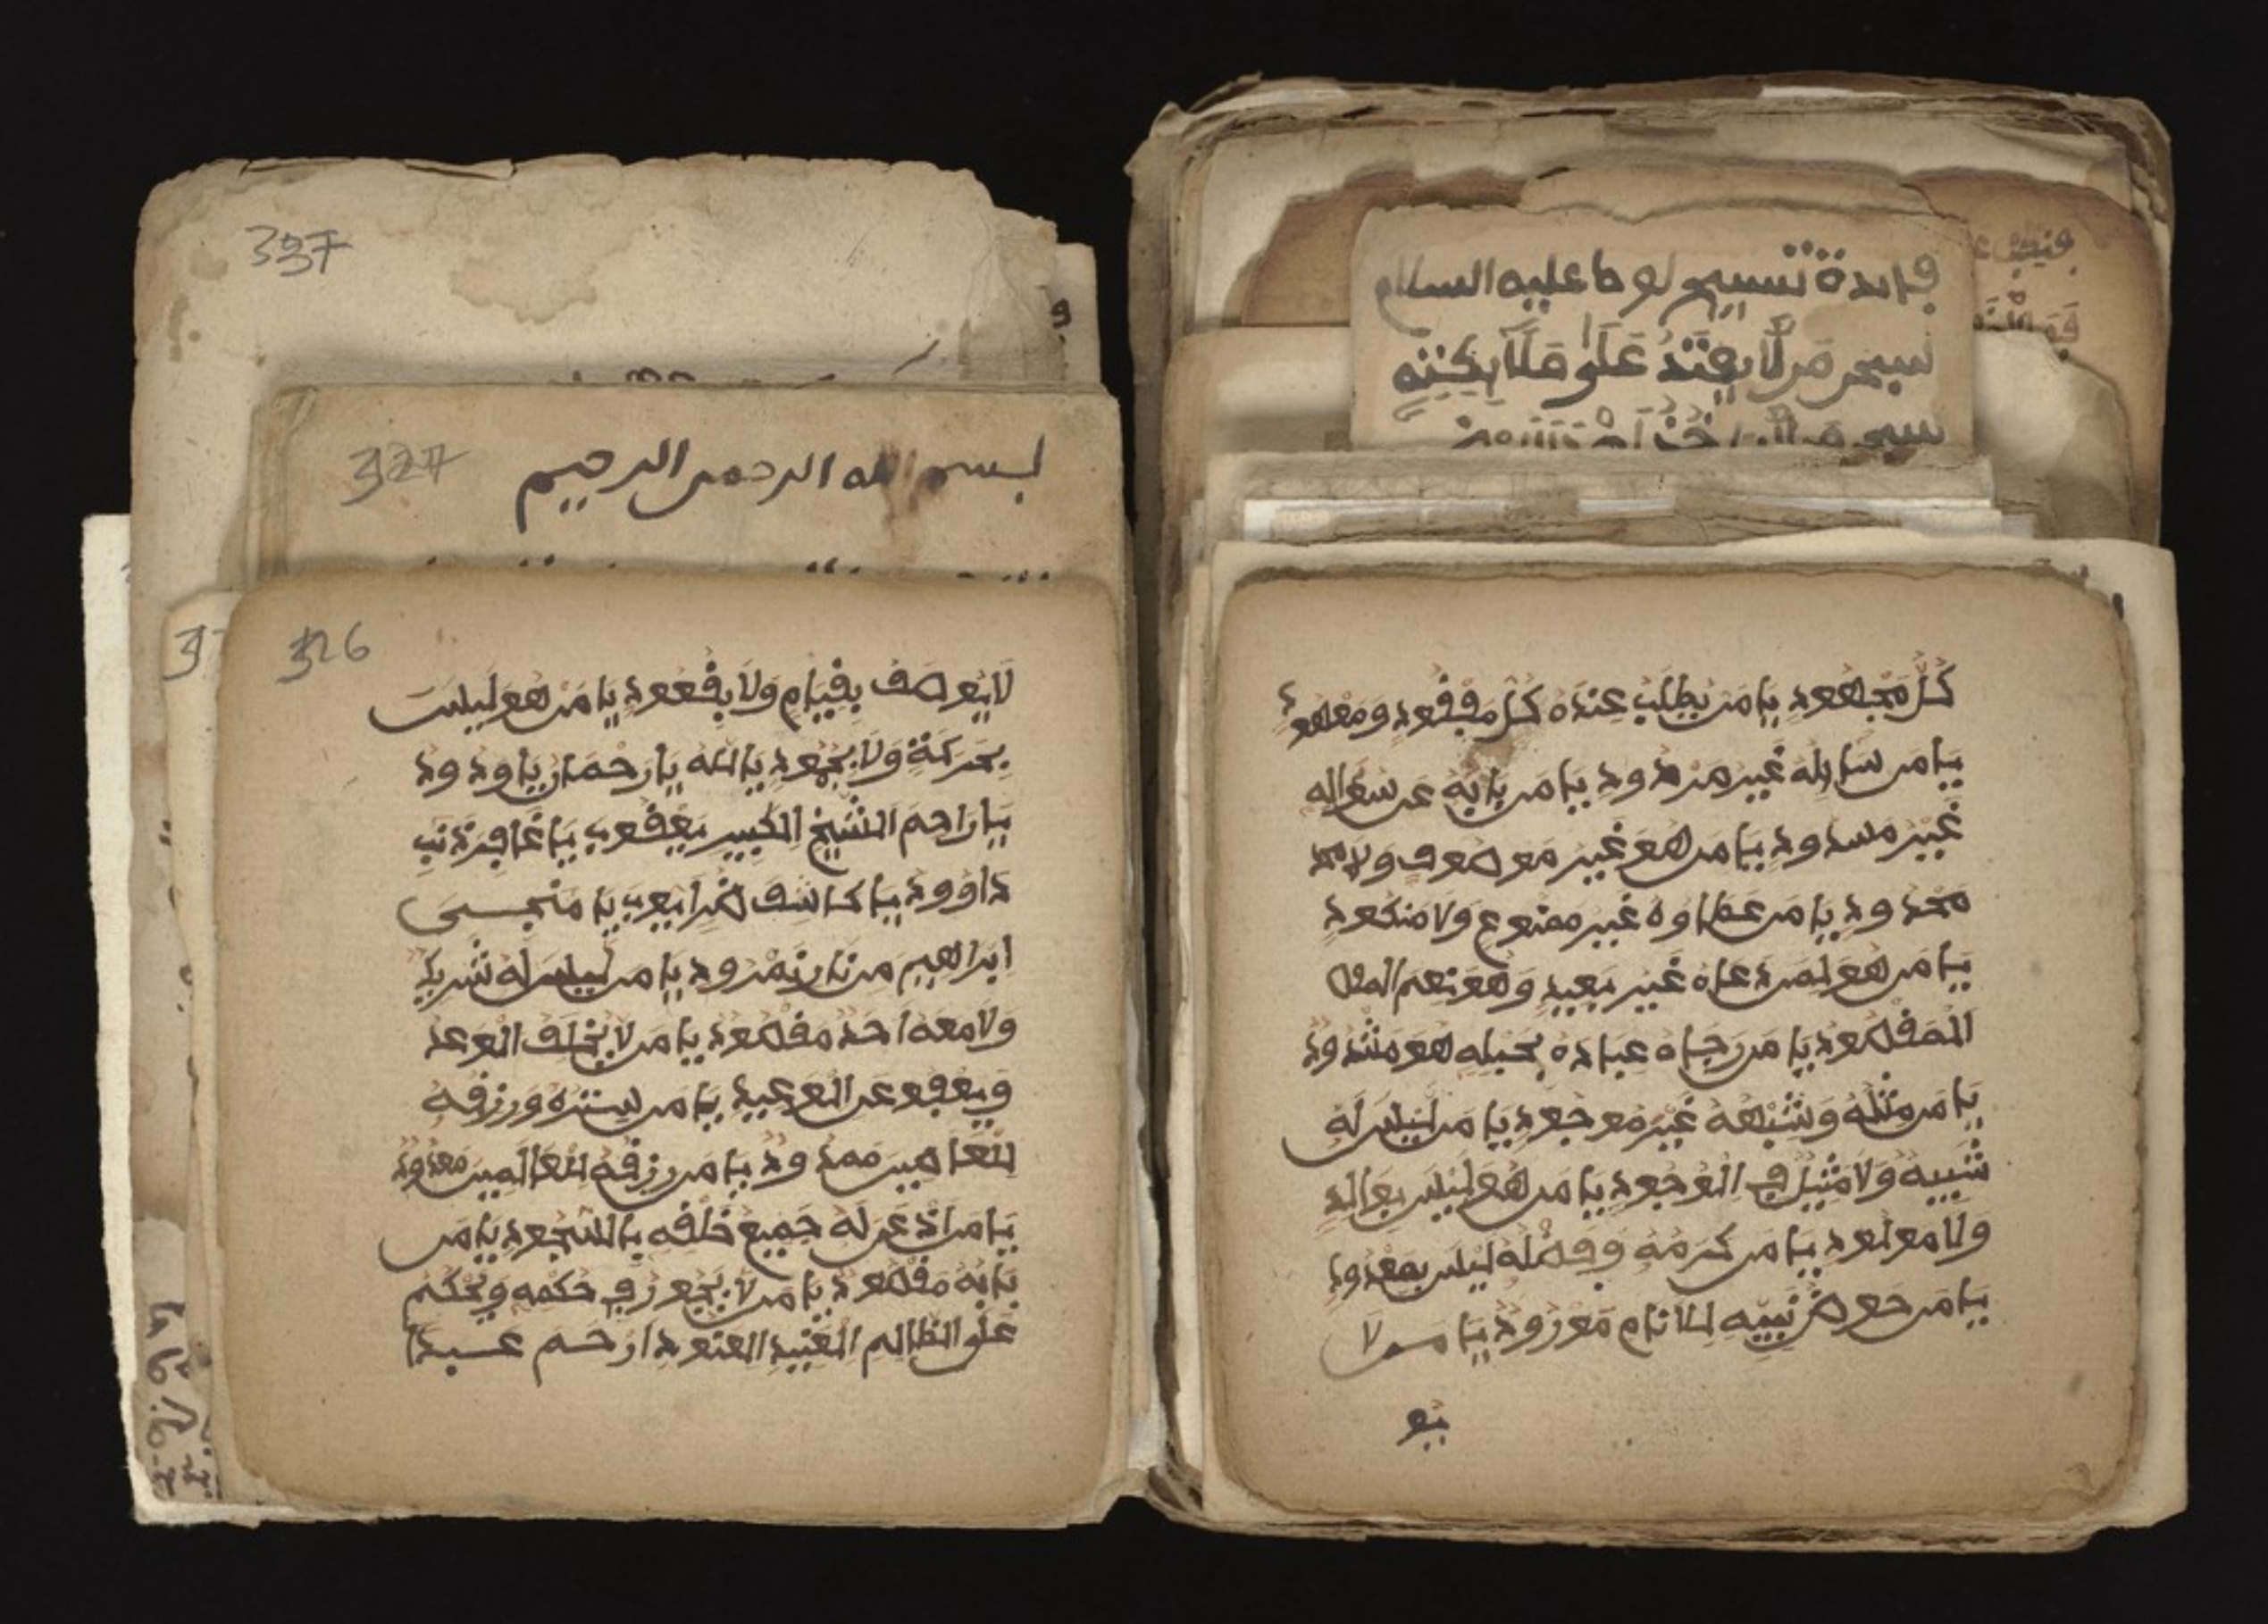 فايدة تسبيح لوط عليه السلام
سبحن من لا يعتد على ملايكته
كل مجهود يا من يطلب عنده كل مفقود ومعهود
يا من سايله غير مردود يا من بابه عن سواله
غير مسدود يا من هو غير موصوف ولا
محدود يا من عطاوه غير ممنوع ولا منكود
يا من هو لمن دعاه غير بعيد وهو نعم
المقصود يا من رجاه عباده بحبله هو مشدود
يا من مثله وشبهه غير موجود يا من ليس له
شبيه ولا مثيل في الوجود يا من هو ليس بوالد
ولا مولود يا من كرمه وفضله ليس بمعدود
يا من حوض نبيه للانام مورود يا من لا
يو
337
327
بسم الله الرحمن الرحيم
326
لا يوصف بقيام ولا بقعود يا من هو ليست
بحركة ولا بجهود يا الله يا رحمان يا ودود
يا راحم الشيخ الكبير يعقوب يا غافر ذنب
داوود يا كاشف ضر ايوب يا منجي
ابراهيم من نار نمرود يا من ليس له شريك
ولا معه احد مقصود يا من لا يخلف الوعد
ويعفو عن الوعيد يا من ستره ورزقه
للعاصين ممدود يا من رزقه للعالمين معدود
يا من اذعن له جميع خلقه بالسجود يا من
بابه مقصود يا من لا يجور في حكمه ويحكم
على الظالم العنيد العنود ارحم عبدا